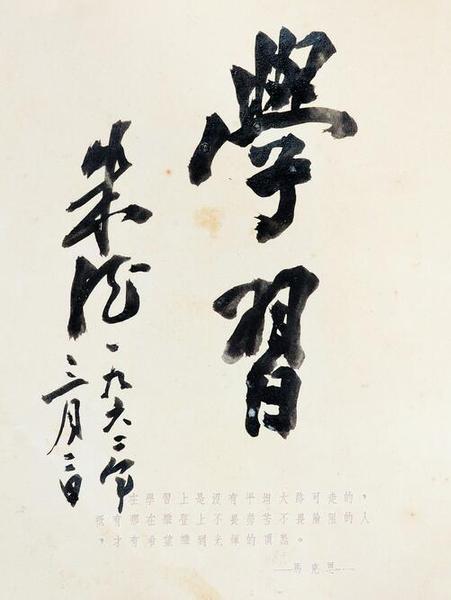 學習
朱德
一九六二年
三月日
在學習上是沒有平坦大路可走的，
祇有那在攀登上不畏勞苦不畏險阻的人
，才有希望攀到光輝的頂點。
——馬克思——